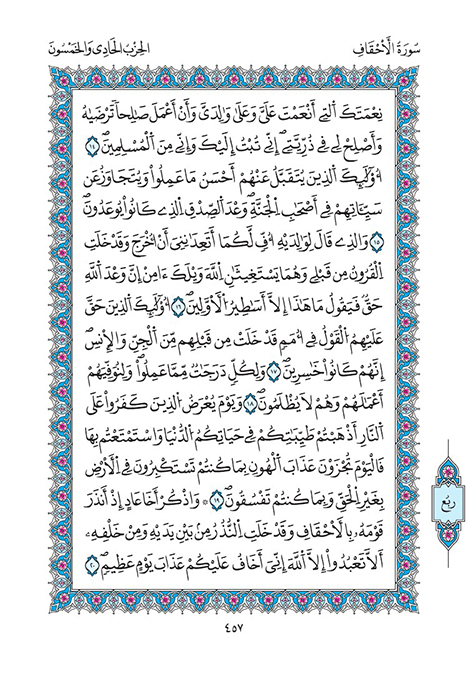 سُورَةُ الْأَحْقَافِ
الحِزْبُ الحَادِي وَالخَمْسُونَ
نِعْمَتَكَ اَلتِے أَنْعَمْتَ عَلَيَّ وَعَلَىٰ وَٰلِدَيَّ وَأَنْ أَعْمَلَ صَٰلِحاً تَرْضَيٰهُ
وَأَصْلِحْ لِے فِے ذُرِّيَّتِيَ إِنِّے تُبْتُ إِلَيْكَ وَإِنِّے مِنَ اَلْمُسْلِمِينَ ١٤
أُوْلَٰٓئِكَ اَلذِينَ يُتَقَبَّلُ عَنْهُمْ أَحْسَنُ مَا عَمِلُواْ وَيُتَجَاوَزُ عَن
سَيِّـَٔاتِهِمْ فِے أَصْحَٰبِ اِلْجَنَّةِ وَعْدَ اَلصِّدْقِ اِلذِے كَانُواْ يُوعَدُونَ
١٥ وَالذِے قَالَ لِوَٰلِدَيْهِ أُفّٖ لَّكُمَا أَتَعِدَٰنِنِيَ أَنُ اخْرَجَ وَقَدْ خَلَتِ
اِلْقُرُونُ مِن قَبْلِے وَهُمَا يَسْتَغِيثَٰنِ اِللَّهَ وَيْلَكَ ءَامِنِ اِنَّ وَعْدَ اَللَّهِ
حَقّٞ فَيَقُولُ مَا هَٰذَا إِلَّا أَسَٰطِيرُ اُلْأَوَّلِينَ ١٦ أُوْلَٰٓئِكَ اَلذِينَ حَقَّ
عَلَيْهِمُ اُلْقَوْلُ فِے أُمَمٖ قَدْ خَلَتْ مِن قَبْلِهِم مِّنَ اَلْجِنِّ وَالْإِنسِ
إِنَّهُمْ كَانُواْ خَٰسِرِينَ ١٧ وَلِكُلّٖ دَرَجَٰتٞ مِّمَّا عَمِلُواْ وَلِنُوَفِّيَهُمْ
أَعْمَٰلَهُمْ وَهُمْ لَا يُظْلَمُونَ ١٨ وَيَوْمَ يُعْرَضُ اُلذِينَ كَفَرُواْ عَلَى
اَلنَّارِ أَذْهَبْتُمْ طَيِّبَٰتِكُمْ فِے حَيَاتِكُمُ اُلدُّنْيَا وَاسْتَمْتَعْتُم بِهَا
فَالْيَوْمَ تُجْزَوْنَ عَذَابَ اَلْهُونِ بِمَا كُنتُمْ تَسْتَكْبِرُونَ فِے اِلْأَرْضِ
بِغَيْرِ اِلْحَقِّ وَبِمَا كُنتُمْ تَفْسُقُونَ ١٩ ۞ وَاذْكُرْ أَخَا عَادٍ إِذْ أَنذَرَ
قَوْمَهُۥ بِالْأَحْقَافِ وَقَدْ خَلَتِ اِلنُّذُرُ مِنۢ بَيْنِ يَدَيْهِ وَمِنْ خَلْفِهِۦ
أَلَّا تَعْبُدُواْ إِلَّا اَللَّهَ إِنِّيَ أَخَافُ عَلَيْكُمْ عَذَابَ يَوْمٍ عَظِيمٖ ٢٠
ربع
٤٥٧